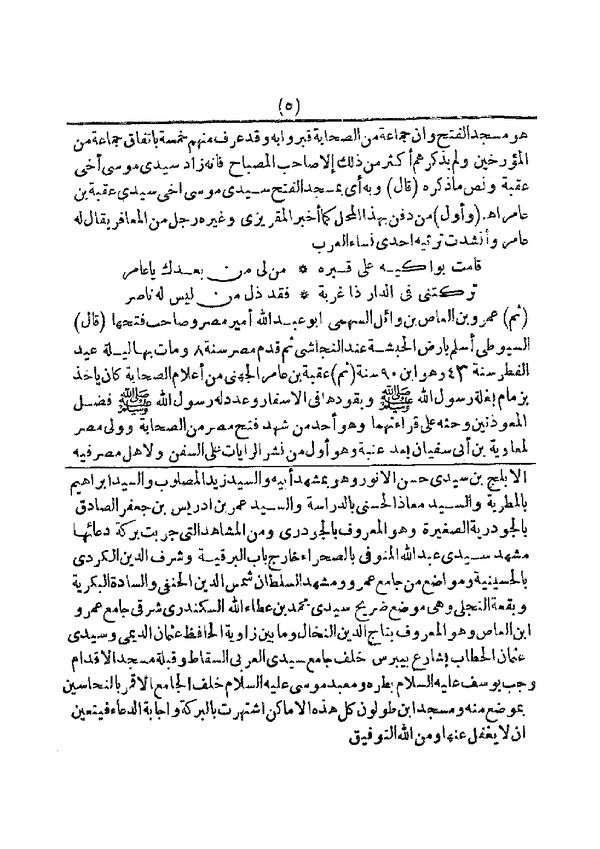 (٥)
هو مسجد الفتح وان جماعة من الصحابة قبروا به وقد عرف منهم خمسة باتفاق جماعة من
المؤرخين ولم يذكرهم أكثر من ذلك إلا صاحب المصباح فانه زاد سيدى موسى أخى
عقبة ونص ماذكره (قال) وبه أى بمسجد الفتح سيدى موسى اخى سيدي عقبة بن
عامر اهـ (وأول) من دفن بهذا المحل كما أخبر المقريزى وغيره رجل من المعافر يقال له
عامر وأنشدت ترثيه احدى نساء العرب
قامت بواكيه على قبره * من لى من بعدك ياعامر
تركتنى فى الدار ذا غربة * فقد ذل من ليس له ناصر
(ثم) عمرو بن العاص بن وائل السهمى ابو عبد الله أمير مصر وصاحب فتحها (قال)
السيوطى أسلم بارض الحبشة عند النجاشى ثم قدم مصر سنة ٨ ومات بها ليلة عيد
الفطر سنة ٤٣ وهو ابن ٩٠ سنة (ثم) عقبة بن عامر الجهنى من أعلام الصحابة كان ياخذ
بزمام بغلة رسول الله ﷺ ويقودها فى الاسفار وعدد له رسول الله ﷺ فضل
المعوذتين وحثه على قراءتهما وهو أحد من شهد فتح مصر من الصحابة وولى مصر
لمعاوية بن أبى سفيان بعد عتبة وهو أول من نشر الرايات على السفن ولاهل مصر فيه
الابلج بن سيدى حسن الانور وهو بمشهد أبيه والسيد زيد المصلوب والسيد ابراهيم
بالمطرية والسيد معاذ الحسنى بالدراسة والسيد عمر بن ادريس بن جعفر الصادق
بالجودرية الصغيرة وهو المعروف بالجودرى ومن المشاهد التى جربت بركة دعائها
مشهد سيدى عبد الله المنوفى بالصحراء خارج باب البرقية وشرف الدين الكردى
بالحسينية ومواضع من جامع عمرو ومشهد السلطان شمس الدين الحنفى والسادة البكرية
وبقعة التجلى وهى موضع ضريح سيدى محمد بن عطاء الله السكندرى شرقى جامع عمرو
ابن العاص وهو المعروف بتاج الدين النخال وما بين زاوية الحافظ عثمان الديمى وسيدى
عثمان الحطاب بشارع بيبرس خلف جامع سيدى العربى السقاط وقبلة مسجد الاقدام
وجب يوسف عليه السلام بطره ومعبد موسى عليه السلام خلف الجامع الاقمر بالنحاسين
بموضع منه ومسجد ابن طولون كل هذه الاماكن اشتهرت بالبركة واجابة الدعاء فيتعين
ان لا يغفل عنها ومن الله التوفيق